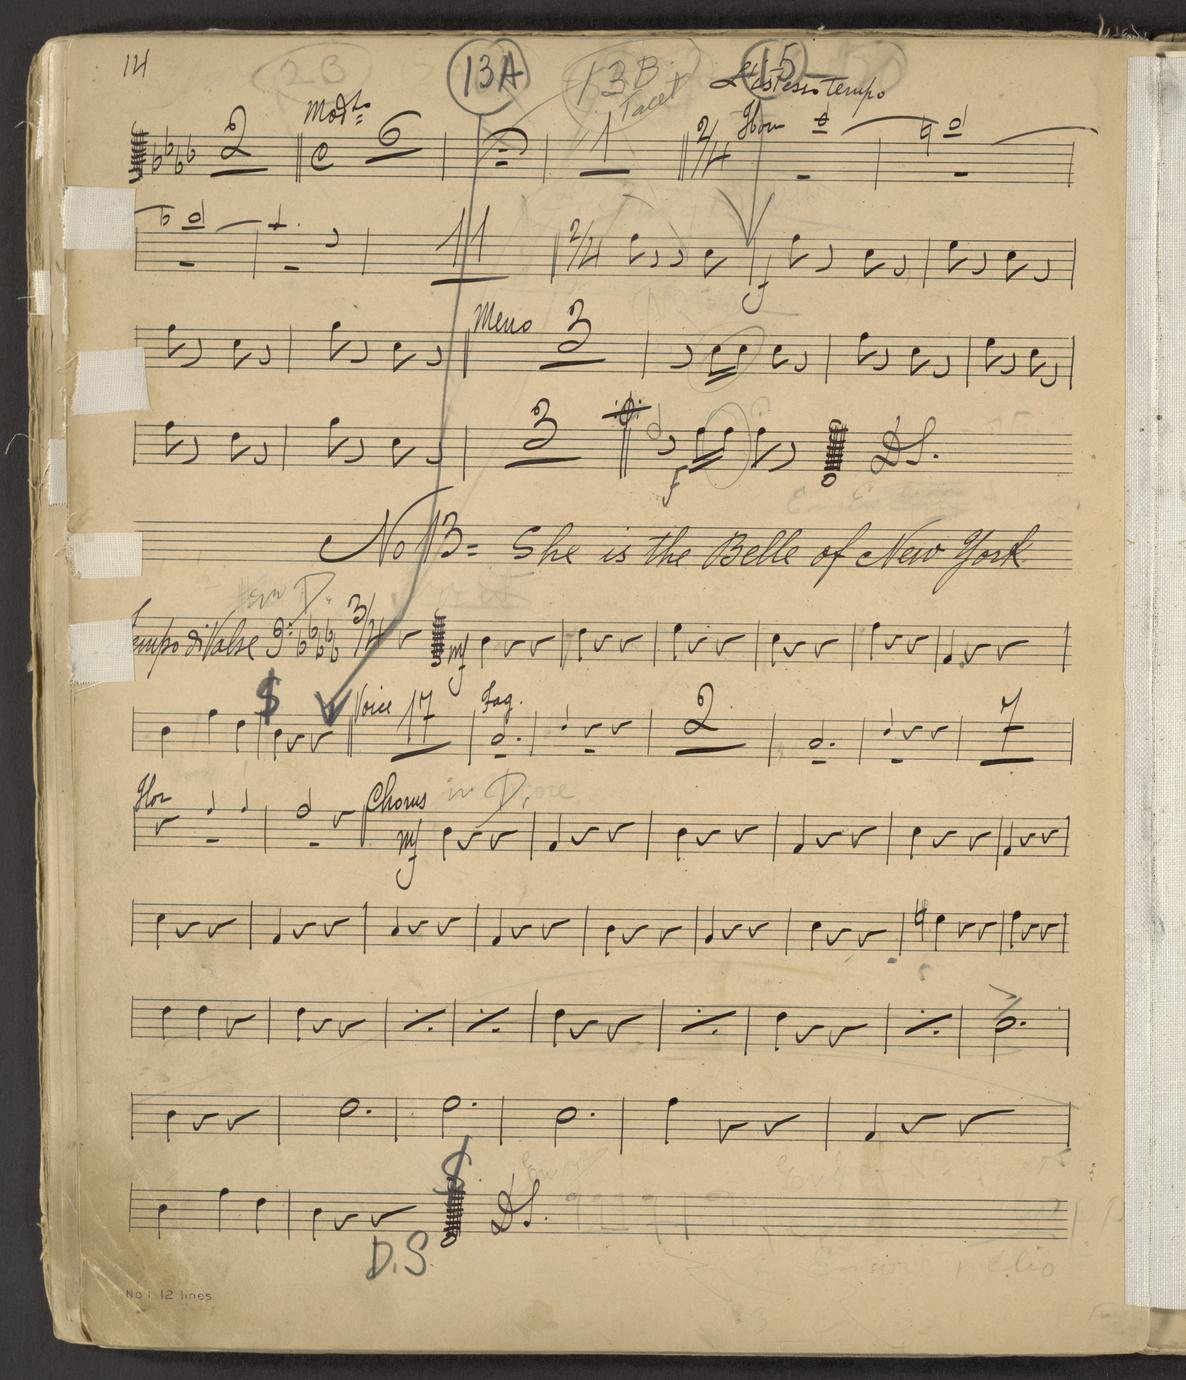 14
2B 13A 13B Tacet 15
L'istesso Tempo
2 Modto 6 1 2/4 Horn
11 2/4 f
Meno 3
3 f D.S.
No 13 = She is the Belle of New York
in D.
Tempo di Valse 3/4 mf
Voice 17 Fag. 2 7
Hor Chorus in D,
mf
Encore
D.S.
D.S.
No 1 12 lines